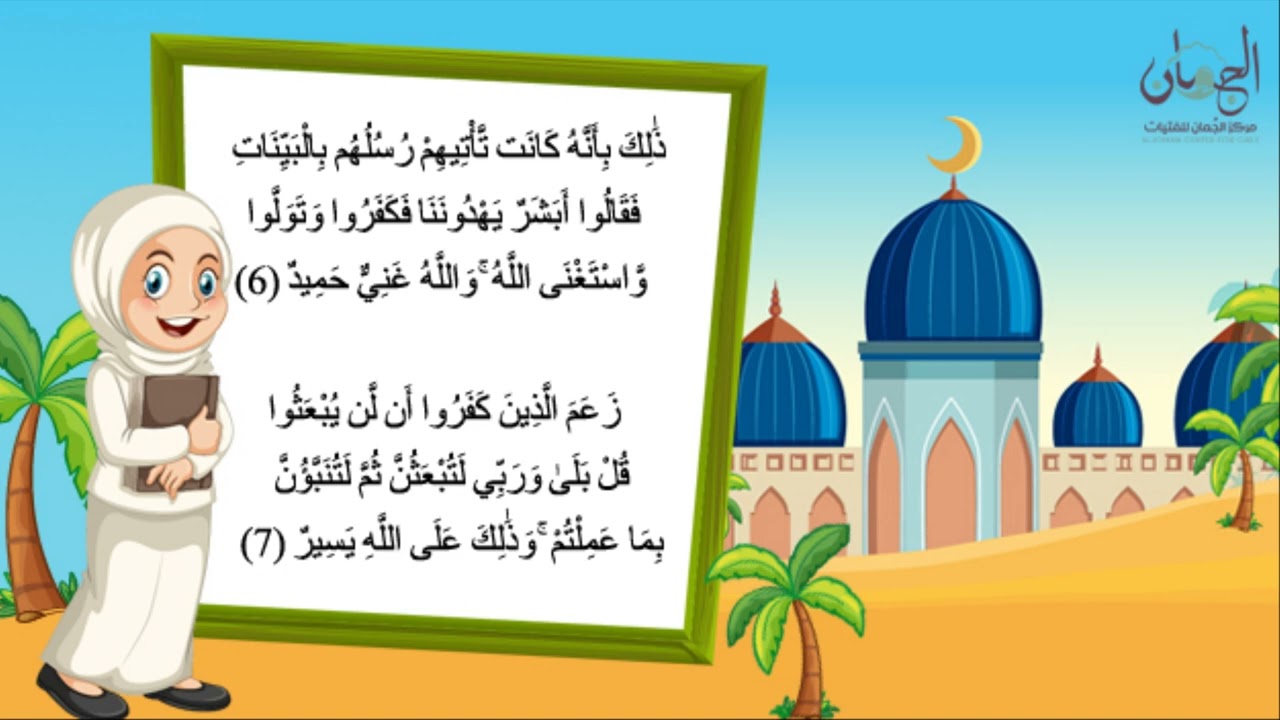 ذَٰلِكَ بِأَنَّهُ كَانَت تَّأْتِيهِمْ رُسُلُهُم بِالْبَيِّنَاتِ
فَقَالُوا أَبَشَرٌ يَهْدُونَنَا فَكَفَرُوا وَتَوَلَّوا
وَّاسْتَغْنَى اللَّهُ ۚ وَاللَّهُ غَنِيٌّ حَمِيدٌ (6)
زَعَمَ الَّذِينَ كَفَرُوا أَن لَّن يُبْعَثُوا
قُلْ بَلَىٰ وَرَبِّي لَتُبْعَثُنَّ ثُمَّ لَتُنَبَّؤُنَّ
بِمَا عَمِلْتُمْ ۚ وَذَٰلِكَ عَلَى اللَّهِ يَسِيرٌ (7)
الجمان
مركز الجُمان للفتيات
ALJUMAN CENTER FOR GIRLS